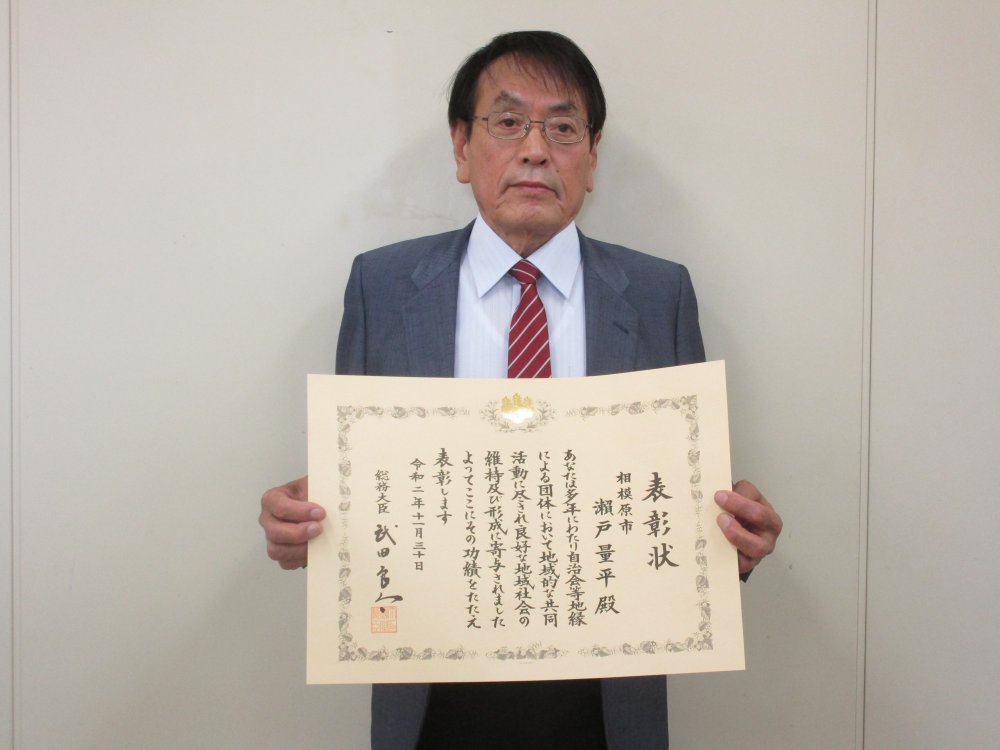 表彰状
相模原市
瀬戸量平殿
あなたは多年にわたり自治会等地縁
による団体において地域的な共同
活動に尽され良好な地域社会の
維持及び形成に寄与されました
よってここにその功績をたたえ
表彰します
令和二年十一月三十日
総務大臣 武田良太